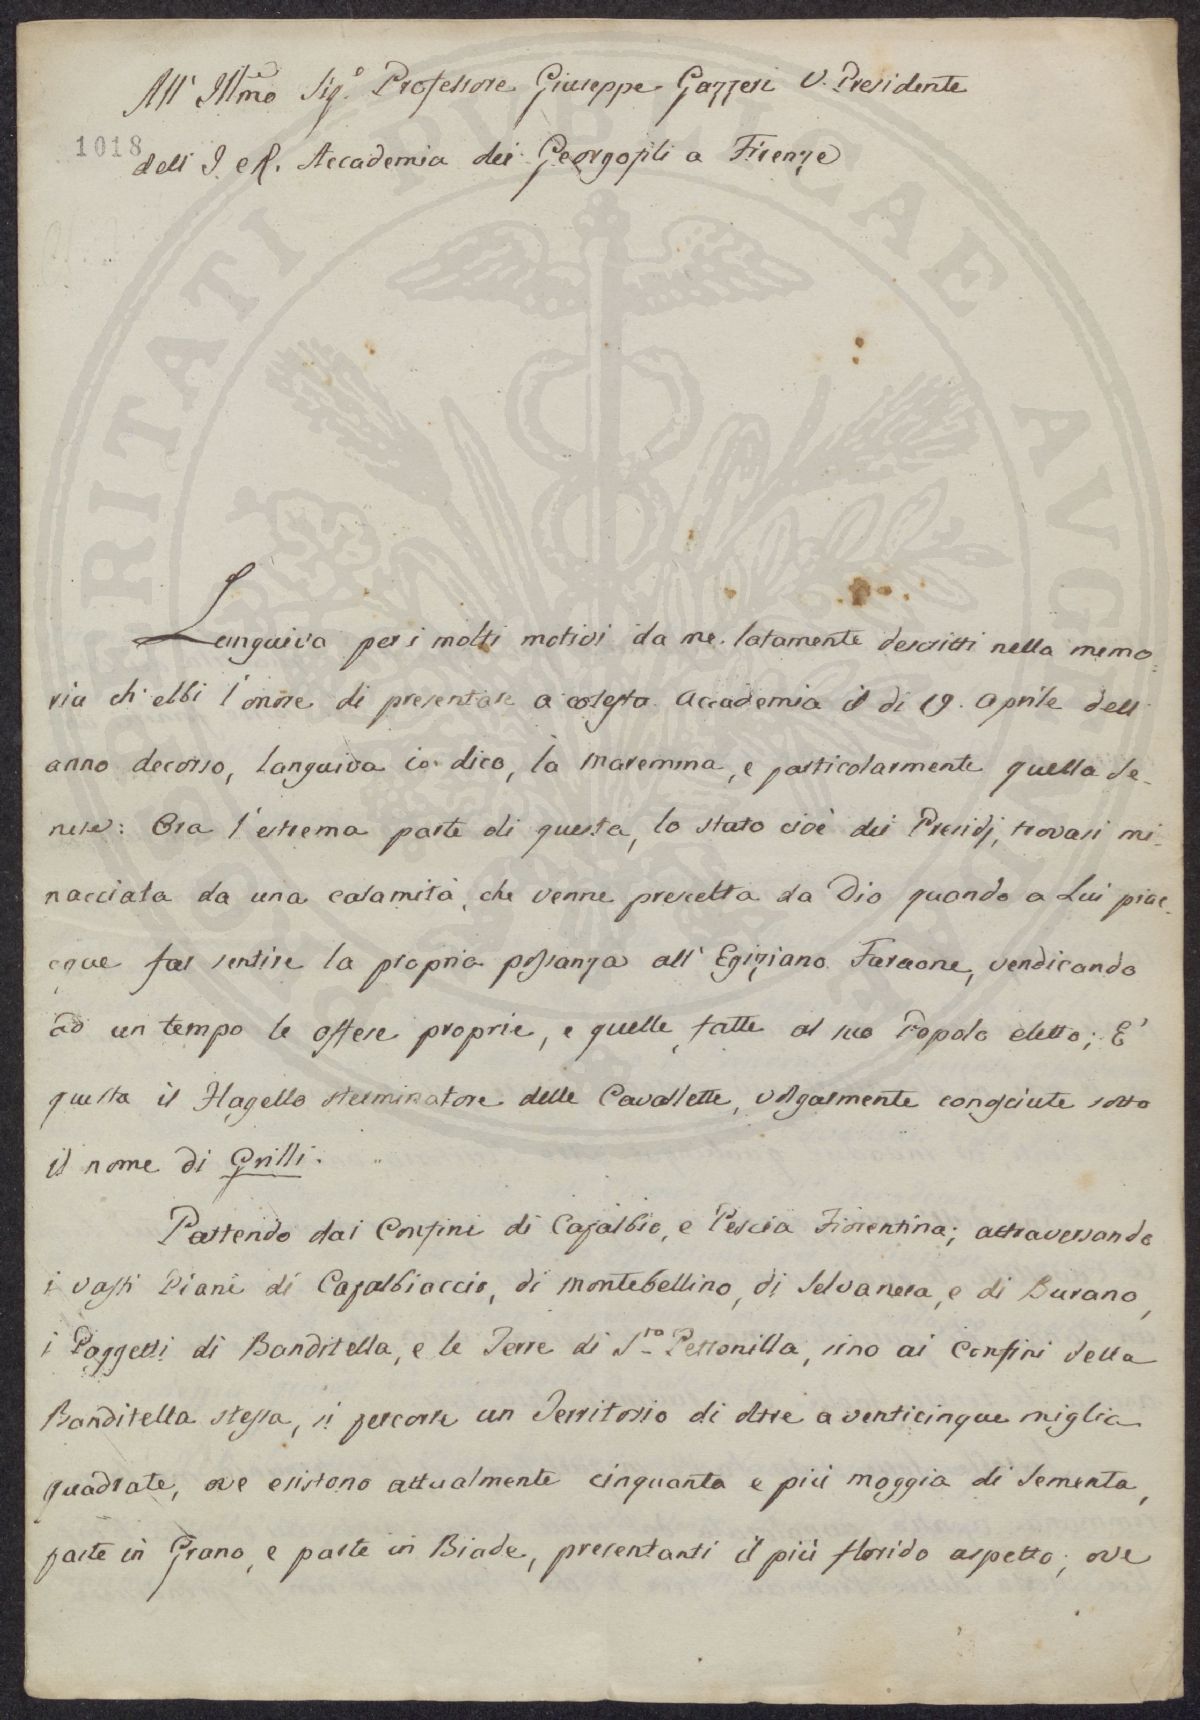 All' Ill.mo Sig.e Professore Giuseppe Gazzeri V. Presidente
1018
dell' I. e R. Accademia dei Georgofili a Firenze
PROSPERITATI PUBLICAE AUGENDAE
Languiva per i molti motivi da me latamente descritti nella memo-
ria ch' ebbi l'onore di presentare a cotesta Accademia il dì 19. Aprile dell'
anno decorso, languiva io dico, la Maremma, e particolarmente quella Se-
nese: Ora l'estrema parte di questa, lo stato cioè dei Presidj, trovasi mi-
nacciata da una calamità, che venne prescelta da Dio quando a Lui piac-
cque far sentire la propria possanza all' Egiziano Faraone, vendicando
ad un tempo le offese proprie, e quelle fatte al suo Popolo eletto; E'
questa il Flagello sterminatore delle Cavallette, volgarmente conosciute sotto
il nome di Grilli.
Partendo dai Confini di Capalbio, e Pescia Fiorentina; attraversando
i vasti Piani di Capalbiaccio, di Montebellino, di Selvanera, e di Burano,
i Poggetti di Banditella, e le Terre di S.ta Petronilla, sino ai Confini della
Banditella stessa, si percorre un Territorio di oltre a venticinque miglia
quadrate, ove esistono attualmente cinquanta e più moggia di Sementa,
parte in Grano, e parte in Biade, presentanti il più florido aspetto; ove